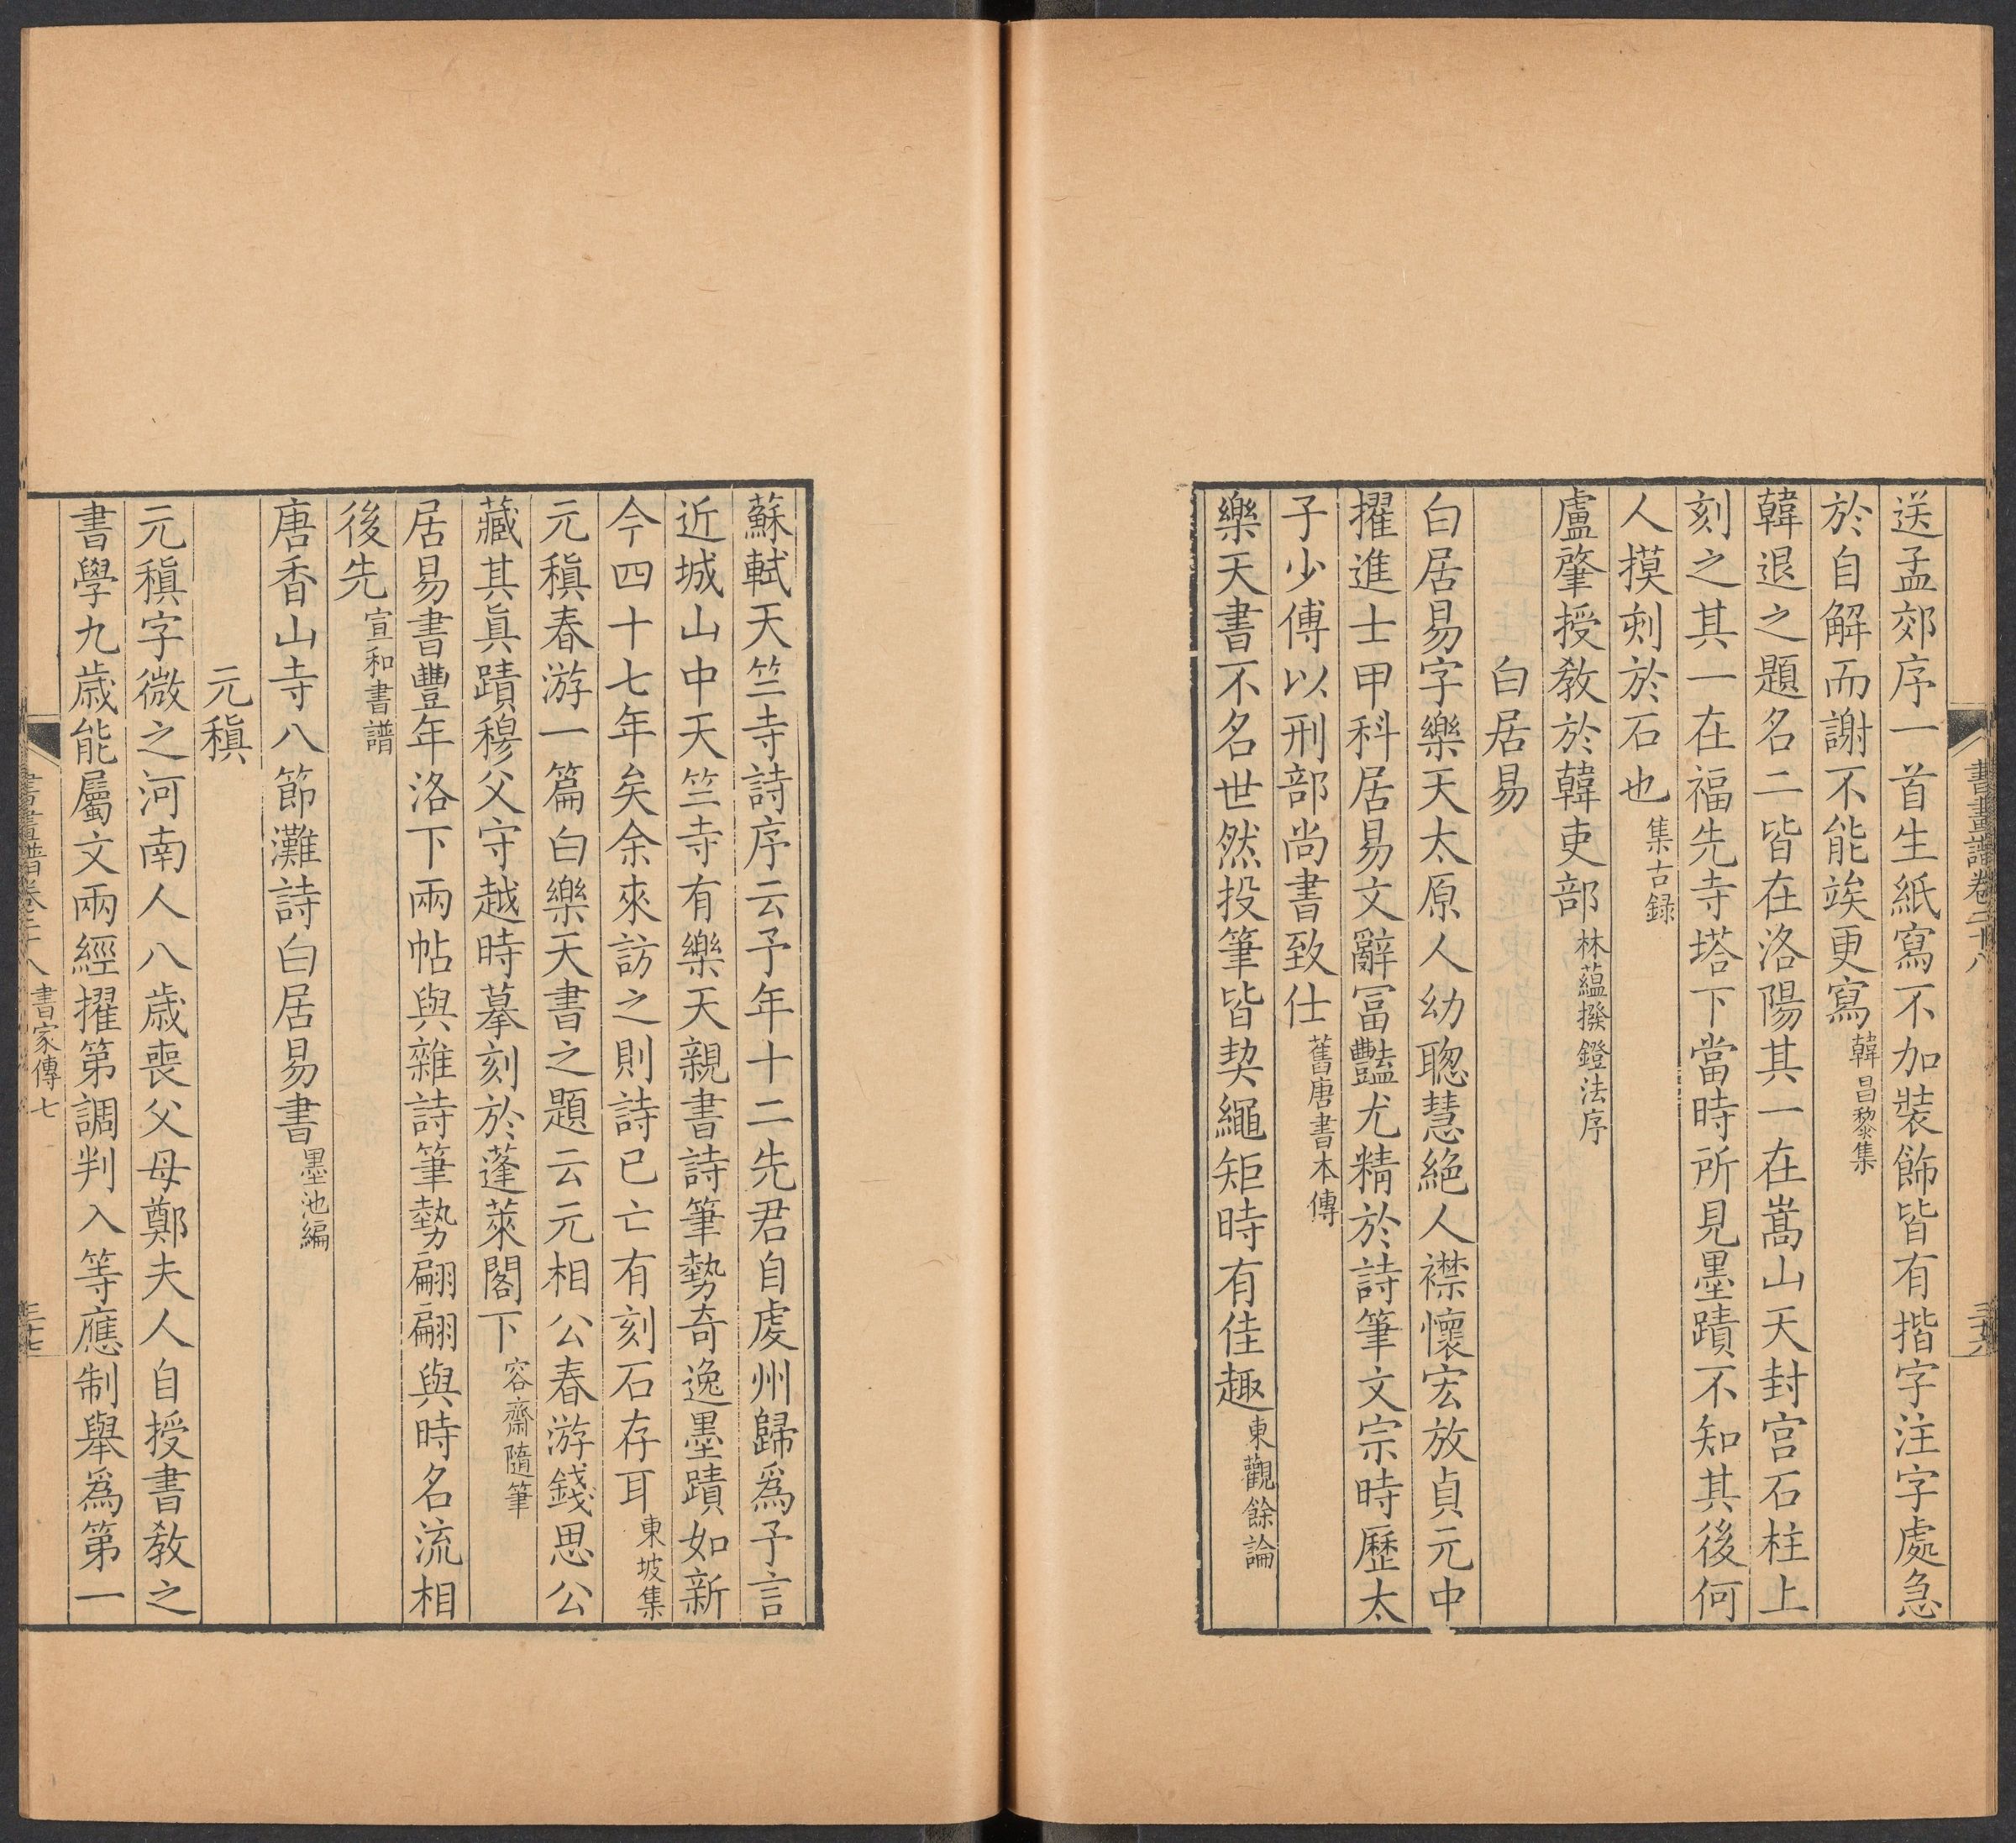 書畫譜卷二十八
三十六
送孟郊序一首生紙寫不加裝飾皆有揩字注字處急
於自解而謝不能竢更寫韓昌黎集
韓退之題名二皆在洛陽其一在嵩山天封宮石柱上
刻之其一在福先寺塔下當時所見墨蹟不知其後何
人摸刻於石也集古録
盧肇授教於韓吏部林蘊撥鐙法序
白居易
白居易字樂天太原人幼聰慧絕人襟懷宏放貞元中
擢進士甲科居易文辭富豔尤精於詩筆文宗時歷太
子少傅以刑部尚書致仕舊唐書本傳
樂天書不名世然投筆皆契繩矩時有佳趣東觀餘論
蘇軾天竺寺詩序云予年十二先君自虔州歸為予言
近城山中天竺寺有樂天親書詩筆勢奇逸墨蹟如新
今四十七年矣余來訪之則詩已亡有刻石存耳東坡集
元稹春游一篇白樂天書之題云元相公春游錢思公
藏其眞蹟穆父守越時摹刻於蓬萊閣下容齋隨筆
居易書豐年洛下兩帖與雜詩筆勢翩翩與時名流相
後先宣和書譜
唐香山寺八節灘詩白居易書墨池編
元稹
元稹字微之河南人八歲喪父母鄭夫人自授書教之
書學九歲能屬文兩經擢第調判入等應制舉爲第一
書畫譜卷二十八 書家傳七
三十七